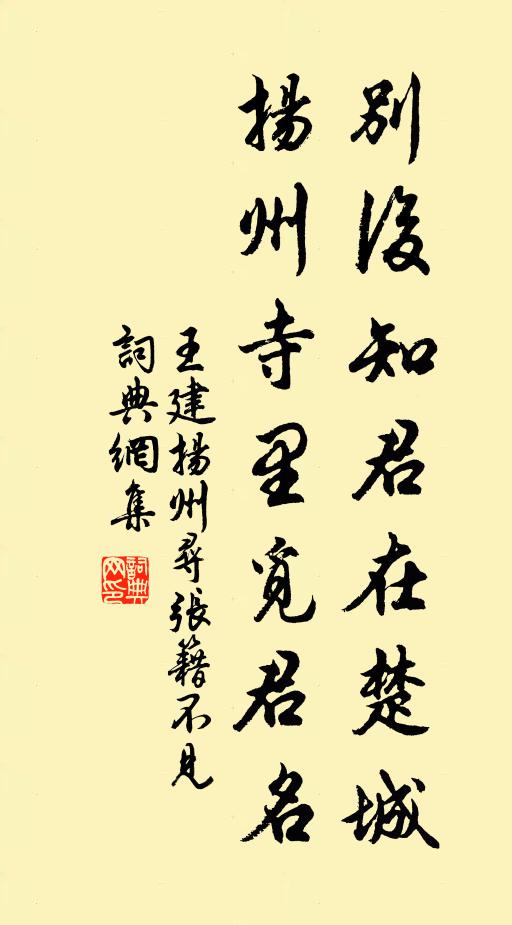 別後知君在楚城
揚州寺里覓君名
王建揚州尋張籍不見
詞典網集
詞典網印